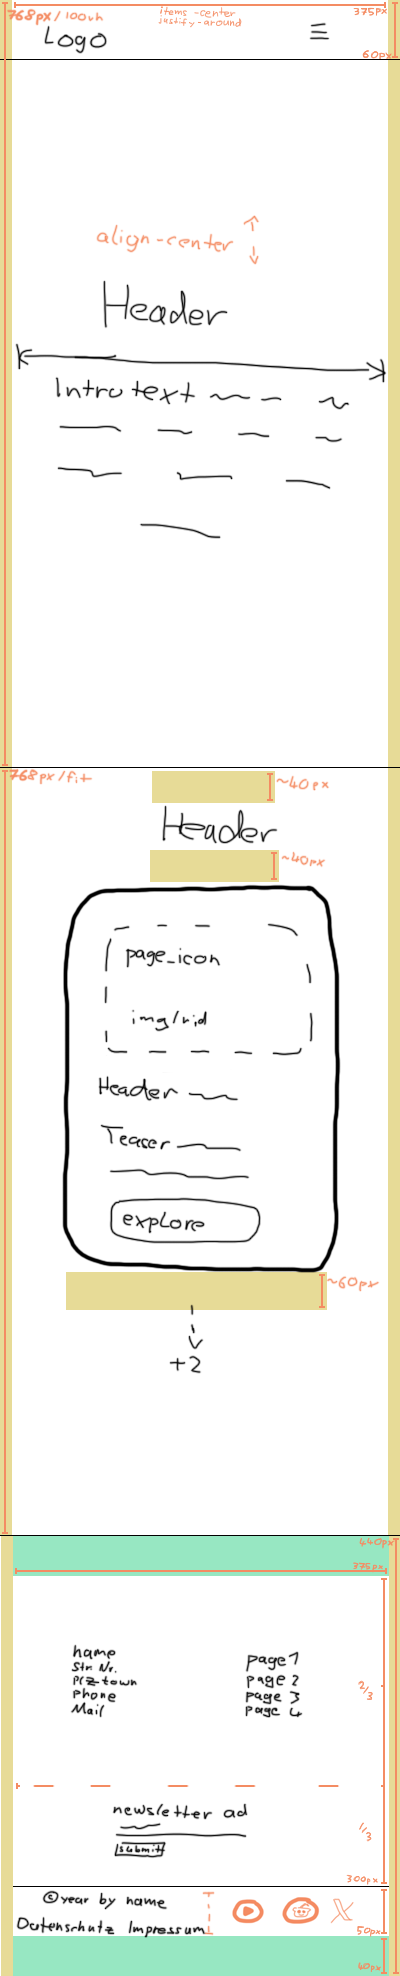 768px/100vh
items-center
justify-around
375px
Logo
60px
align-center
Header
Introtext
768px/fit
~40px
Header
~40px
page_icon
img/vid
Header
Teaser
explore
~60px
+2
440px
375px
name
Str. Nr.
PLZ town
phone
Mail
page 1
page 2
page 3
page 4
2/3
newsletter ad
submit
1/3
300px
©year by name
Datenschutz Impressum
50px
40px